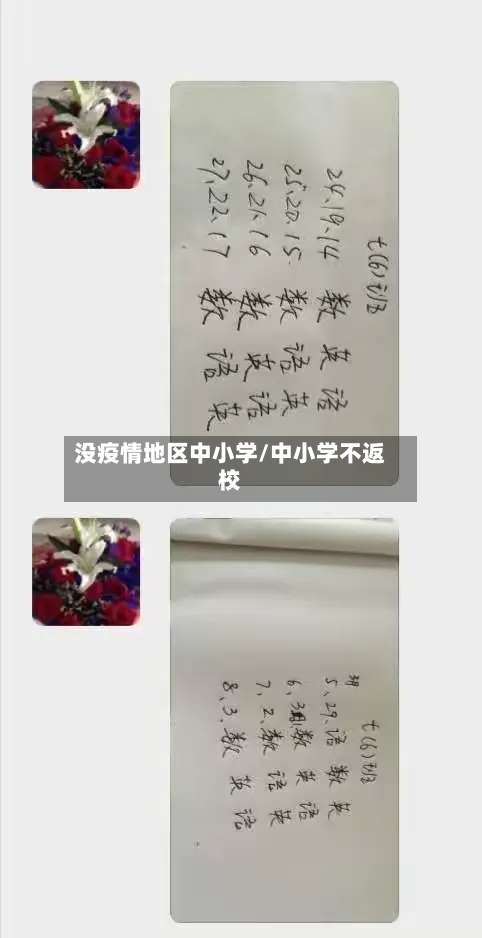 七(6)班
24、19、14 数 英 语
25、20、15 数 语 英
26、21、16 数 英 语
27、22、17 数 语 英
没疫情地区中小学/中小学不返
校
七(6)班
5、29、语 数 英
6、数 英 语
7、2、数 语 英
8、3、数 英 语